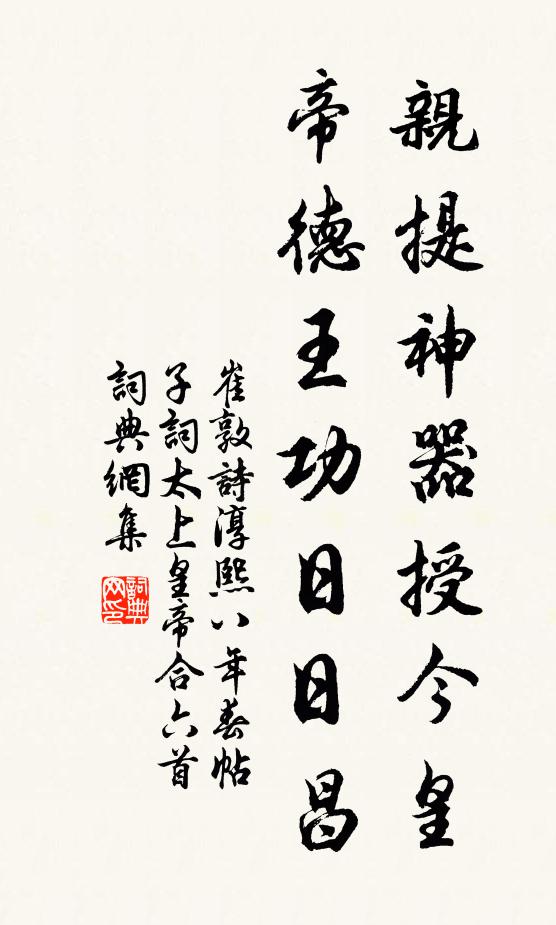 親提神器授今皇
帝德王功日日昌
崔敦詩淳熙八年春帖
子詞太上皇帝合六首
詞典網集
詞典
网印